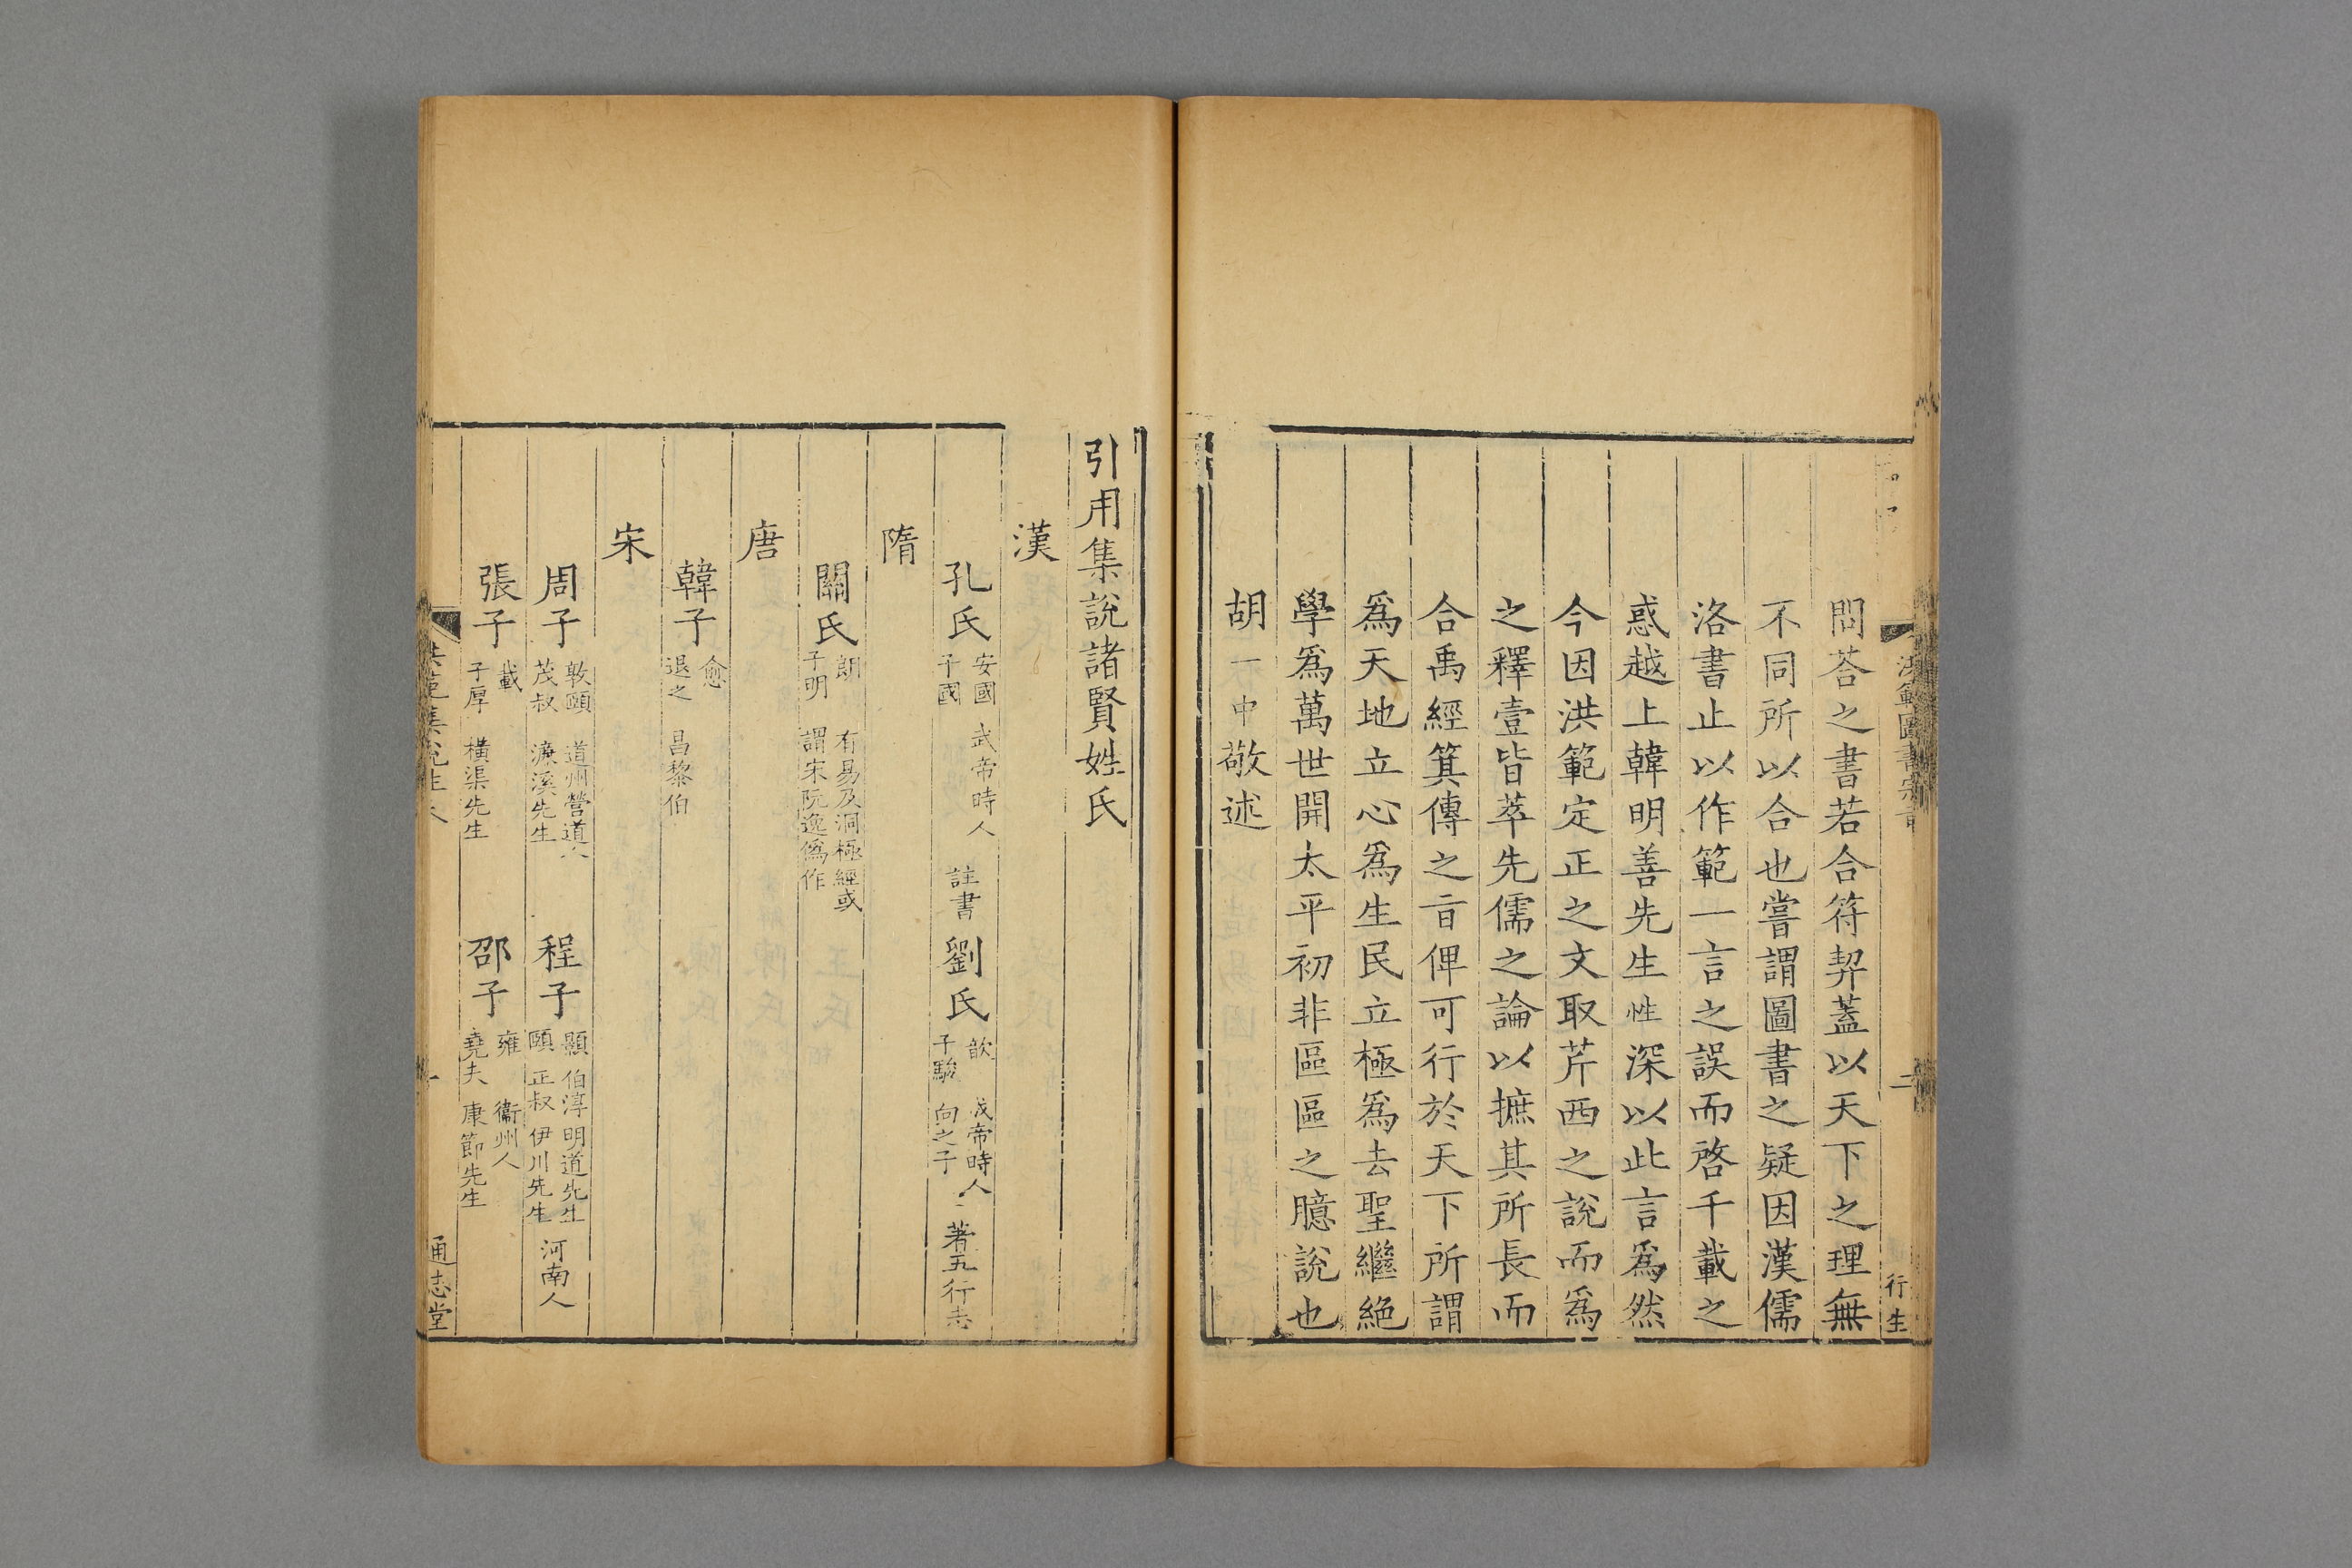 問荅之書若合符契蓋以天下之理無
不同所以合也嘗謂圖書之疑因漢儒
洛書止以作範一言之誤而啓千載之
惑越上韓明善先生性深以此言爲然
今因洪範定正之文取芹西之說而爲
之釋壹皆萃先儒之論以摭其所長而
合禹經箕傳之㫖俾可行於天下所謂
爲天地立心爲生民立極爲去聖繼絶
學爲萬世開太平初非區區之臆說也
胡一中敬述
行生
引用集說諸賢姓氏
漢
孔氏 安國 子國 武帝時人 註書 劉氏 歆 子駿 成帝時人 向之子 著五行志
隋
關氏 朗 子明 有易及洞極經或 謂宋阮逸僞作
唐
韓子 愈 退之 昌黎伯
宋
周子 敦頤 茂叔 道州營道人 濂溪先生 程子 顥 伯淳 明道先生 頤 正叔 伊川先生 河南人
張子 載 子厚 橫渠先生 邵子 雍 堯夫 衞州人 康節先生
通志堂